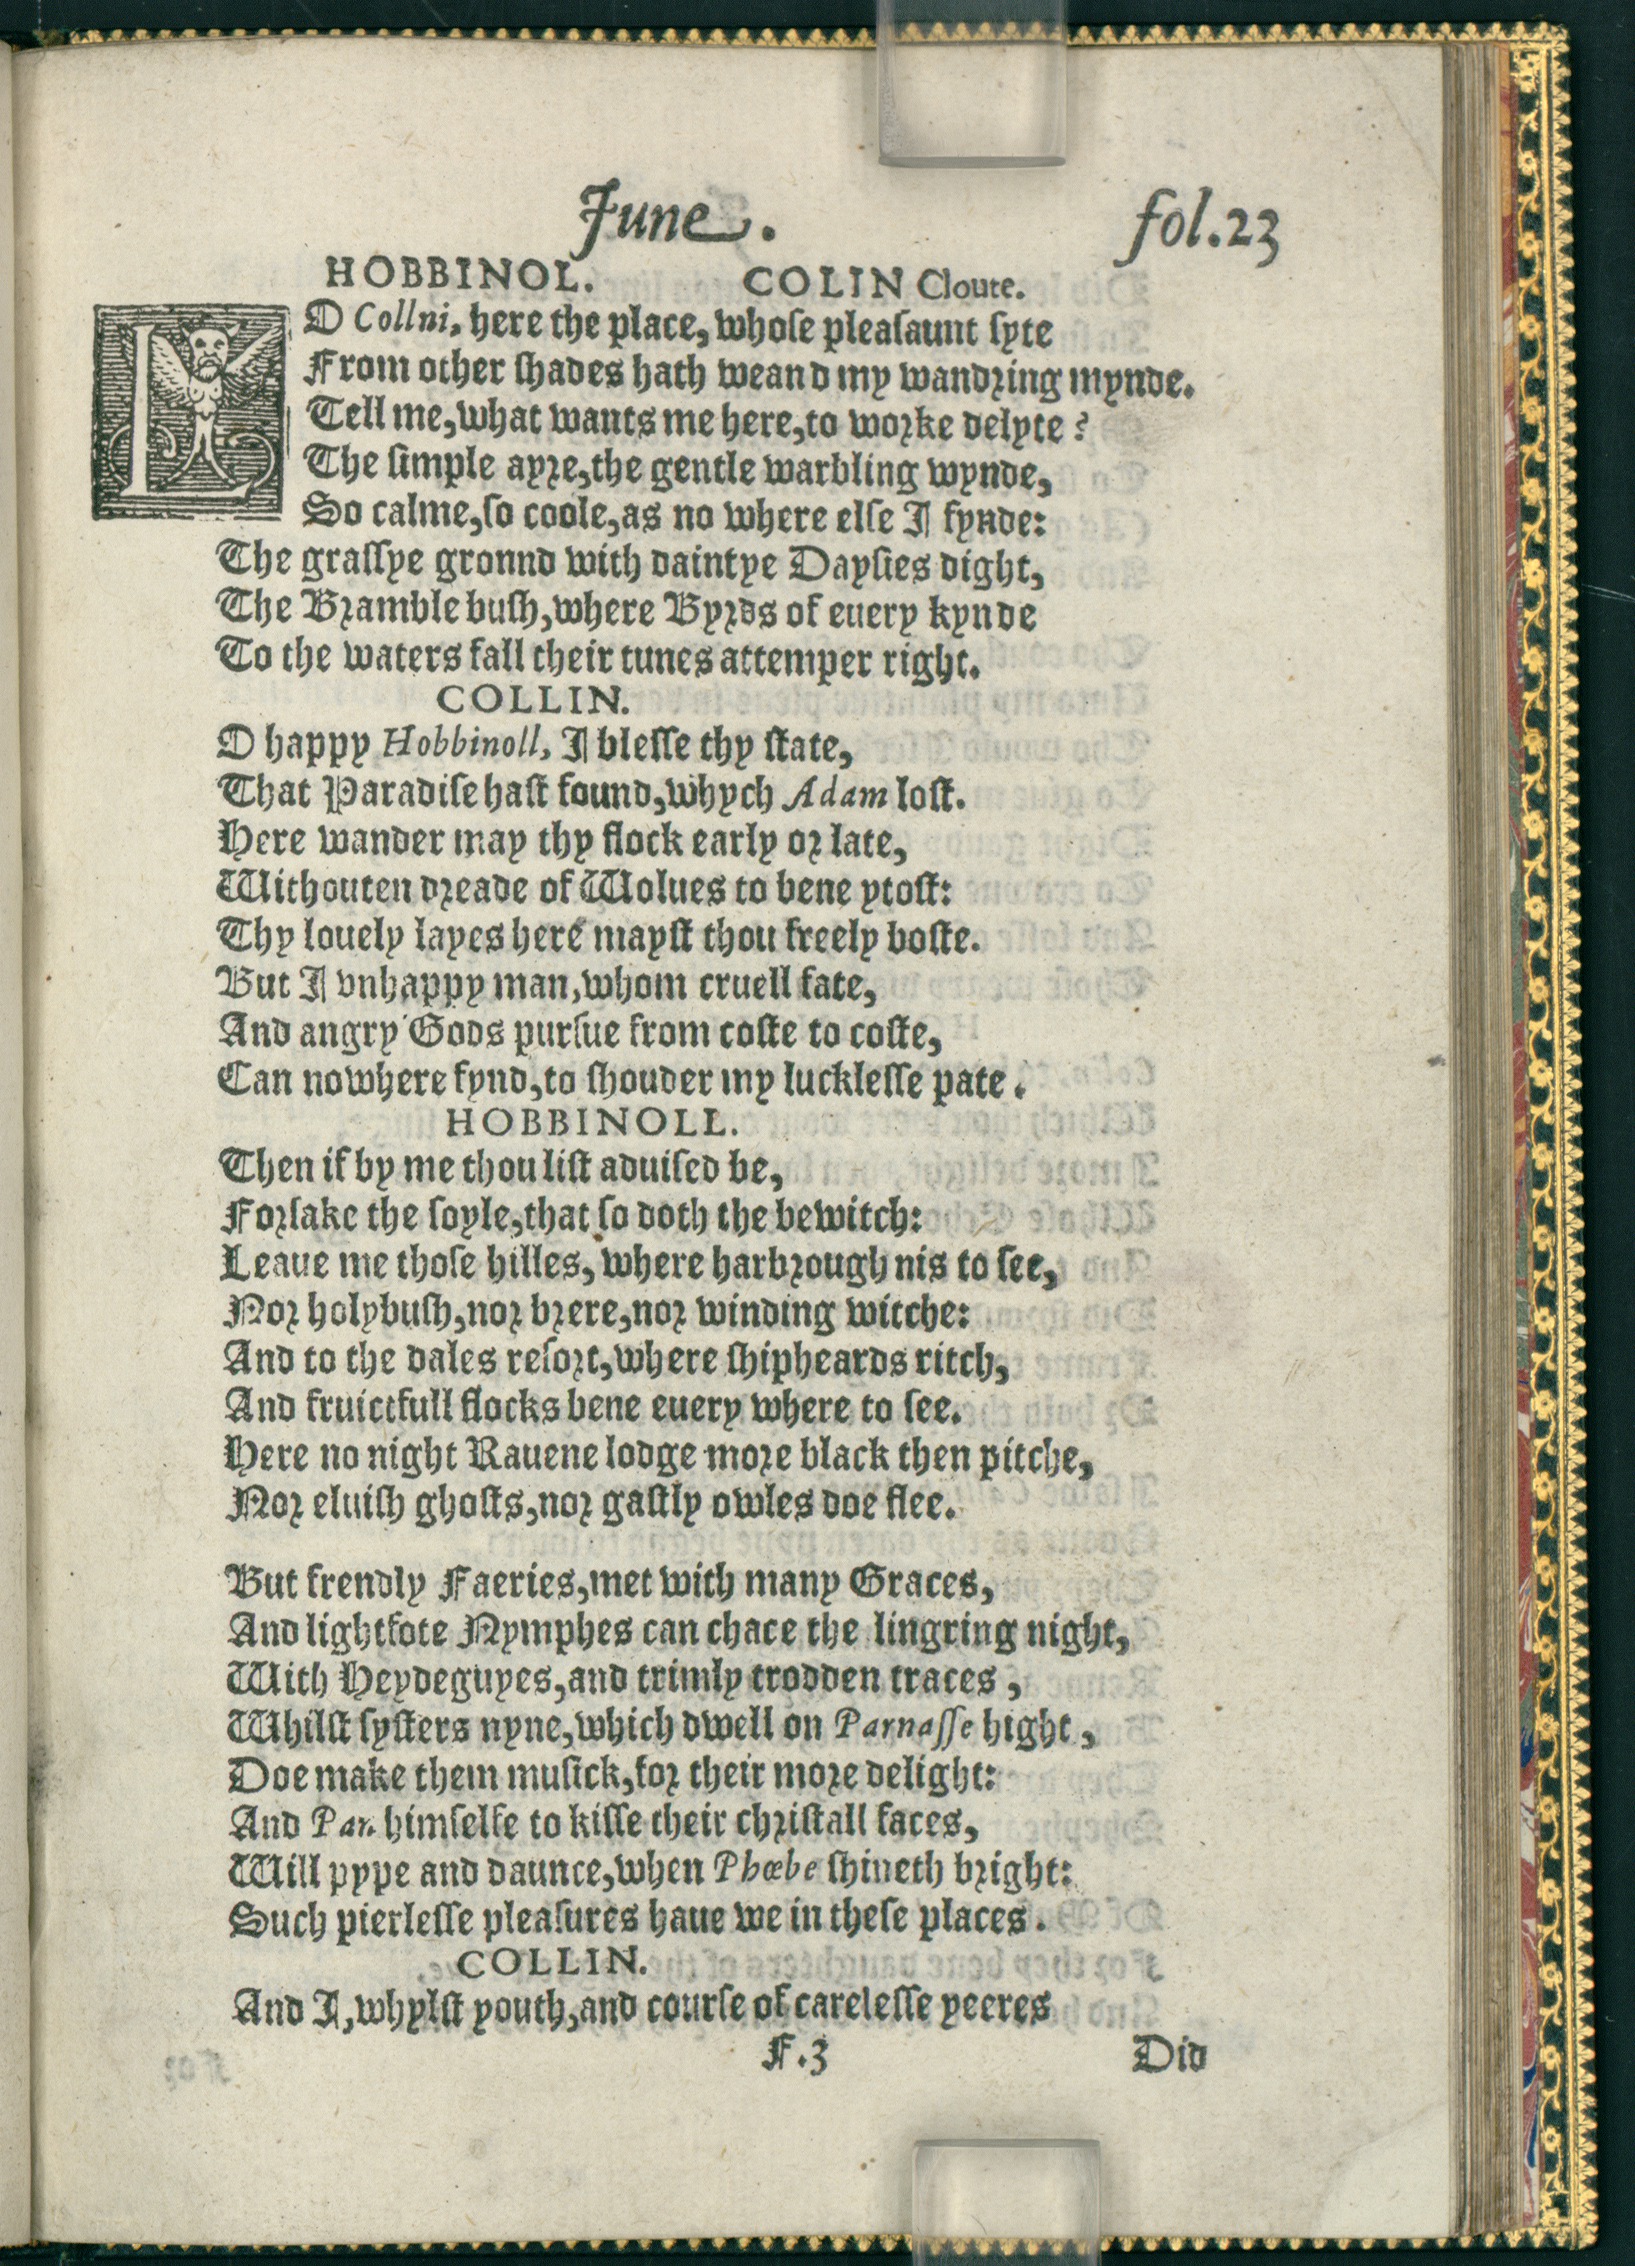 June. fol.23
HOBBINOL. COLIN Cloute.
LO Collni, here the place, whose pleasaunt syte
From other shades hath weand my wandring mynde.
Tell me, what wants me here, to worke delyte?
The simple ayre, the gentle warbling wynde,
So calme, so coole, as no where else I fynde:
The grassye gronnd with daintye Daysies dight,
The Bramble bush, where Byrds of euery kynde
To the waters fall their tunes attemper right.
COLLIN.
O happy Hobbinoll, I blesse thy state,
That Paradise hast found, whych Adam lost.
Here wander may thy flock early or late,
Withouten dreade of Wolues to bene ytost:
Thy louely layes here mayst thou freely boste.
But I vnhappy man, whom cruell fate,
And angry Gods pursue from coste to coste,
Can nowhere fynd, to shouder my lucklesse pate.
HOBBINOLL.
Then if by me thou list aduised be,
Forsake the soyle, that so doth the bewitch:
Leaue me those hilles, where harbrough nis to see,
Nor holybush, nor brere, nor winding witche:
And to the dales resort, where shipheards ritch,
And fruictfull flocks bene euery where to see.
Here no night Rauene lodge more black then pitche,
Nor eluish ghosts, nor gastly owles doe flee.
But frendly Faeries, met with many Graces,
And lightfote Nymphes can chace the lingring night,
With Heydeguyes, and trimly trodden traces,
Whilst systers nyne, which dwell on Parnasse hight,
Doe make them musick, for their more delight:
And Pan himselfe to kisse their christall faces,
Will pype and daunce, when Phœbe shineth bright:
Such pierlesse pleasures haue we in these places.
COLLIN.
And I, whylst youth, and course of carelesse yeeres
F.3 Did